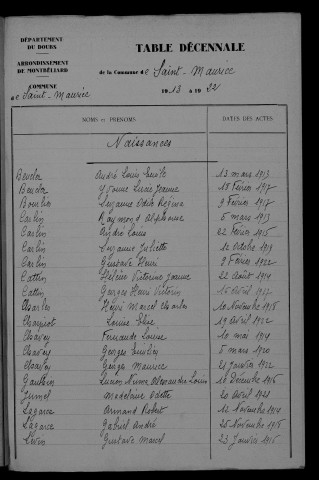 DÉPARTEMENT
DU DOUBS
ARRONDISSEMENT
DE MONTBÉLIARD
COMMUNE
de Saint-Maurice
TABLE DÉCENNALE
de la Commune de Saint-Maurice
1913 à 1922
NOMS et PRÉNOMS
DATES DES ACTES
Naissances
André Louis Emile 13 mars 1913
Yvonne Lucie Jeanne 18 Février 1917
Suzanne Odette Régina 9 Février 1917
Carlin Raymond Alphonse 5 mars 1913
Carlin André Louis 22 Février 1915
Carlin Suzanne Juliette 1e Octobre 1919
Carlin Gustave Henri 9 Février 1922
Cattin Hélène Victorine Jeanne 22 Août 1914
Cattin Georges Henri Victorin 15 Avril
Charles Henri Marcel Charles 10 Novembre 1918
Louise Elise 19 Avril 1922
Chavey Fernande Louise 10 mai 1914
Chavey Georges Emilien 5 mars 1920
Chavey Georges Maurice 21 Janvier 1922
Gauthier Lucien Numa Alexandre Louis 1e Décembre 1916
Jumel Madeleine Odette 20 Avril 1921
Lagarce Armand Robert 12 Novembre 1914
Lagarce Gabriel André 25 Novembre 1916
Gustave Marcel 23 Janvier 1916